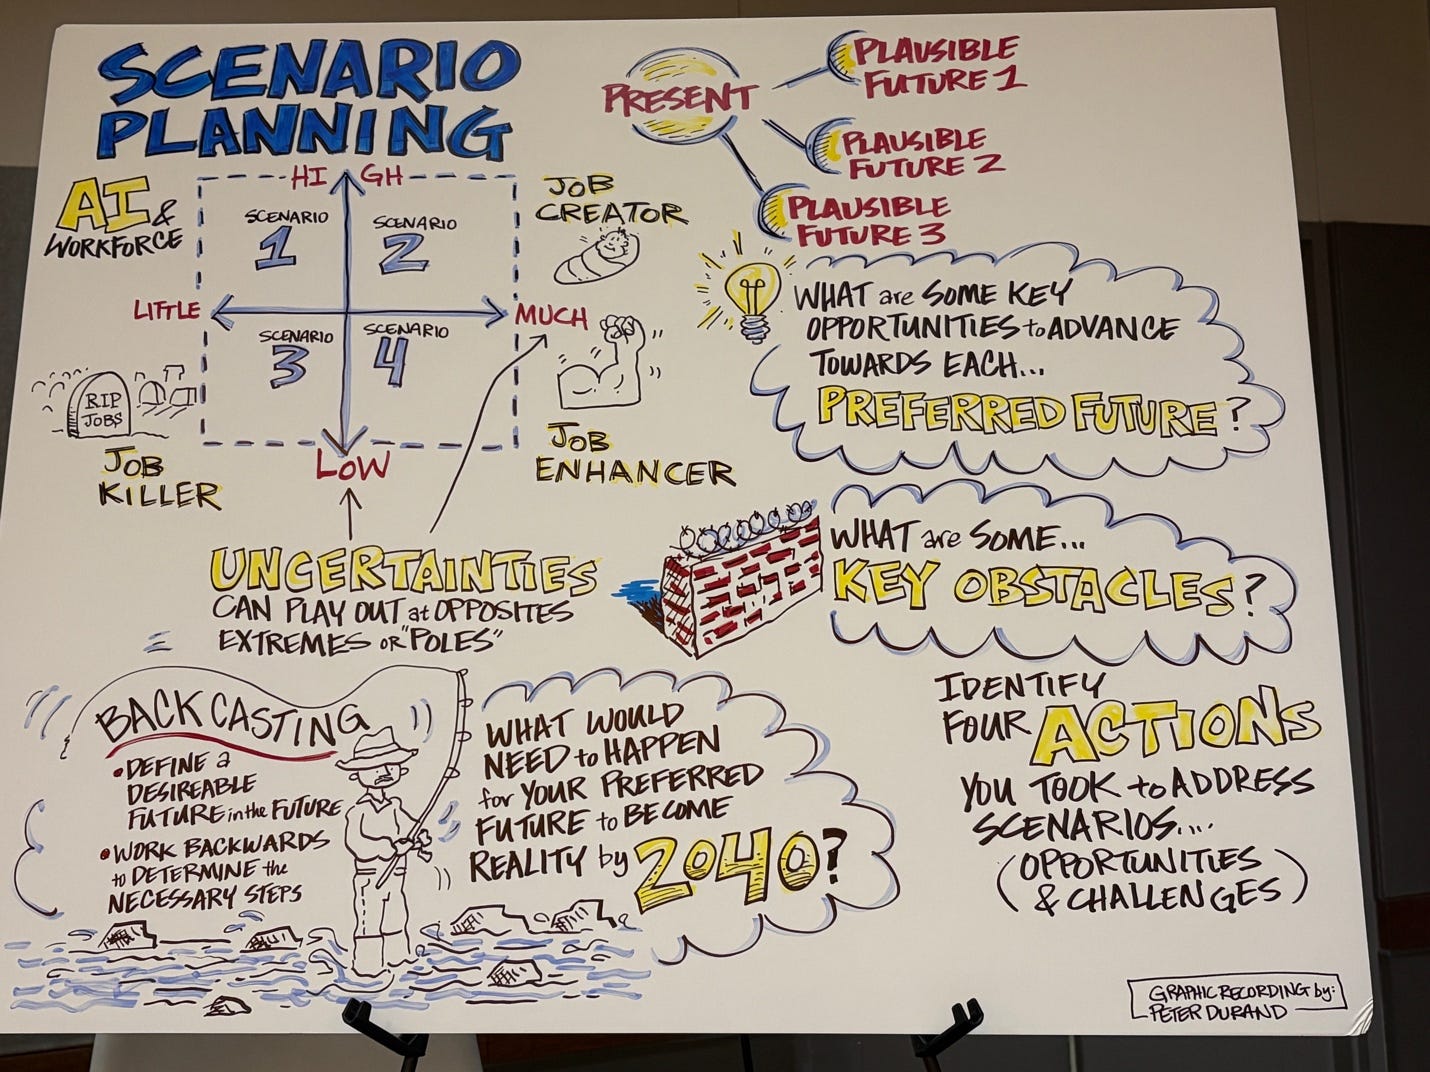 SCENARIO
PLANNING
AI &
WORKFORCE
HIGH
SCENARIO
1
SCENARIO
2
LITTLE
MUCH
SCENARIO
3
SCENARIO
4
LOW
JOB
CREATOR
RIP
JOBS
JOB
KILLER
JOB
ENHANCER
UNCERTAINTIES
CAN PLAY OUT at OPPOSITES
EXTREMES OR "POLES"
PRESENT
PLAUSIBLE
FUTURE 1
PLAUSIBLE
FUTURE 2
PLAUSIBLE
FUTURE 3
WHAT are SOME KEY
OPPORTUNITIES to ADVANCE
TOWARDS EACH...
PREFERRED FUTURE?
WHAT are SOME...
KEY OBSTACLES?
BACKCASTING
• DEFINE a
DESIREABLE
FUTURE in the FUTURE
• WORK BACKWARDS
to DETERMINE the
NECESSARY STEPS
WHAT WOULD
NEED to HAPPEN
for YOUR PREFERRED
FUTURE to BECOME
REALITY by 2040?
IDENTIFY
FOUR ACTIONS
YOU TOOK to ADDRESS
SCENARIOS....
(OPPORTUNITIES
& CHALLENGES)
GRAPHIC RECORDING by:
PETER DURAND